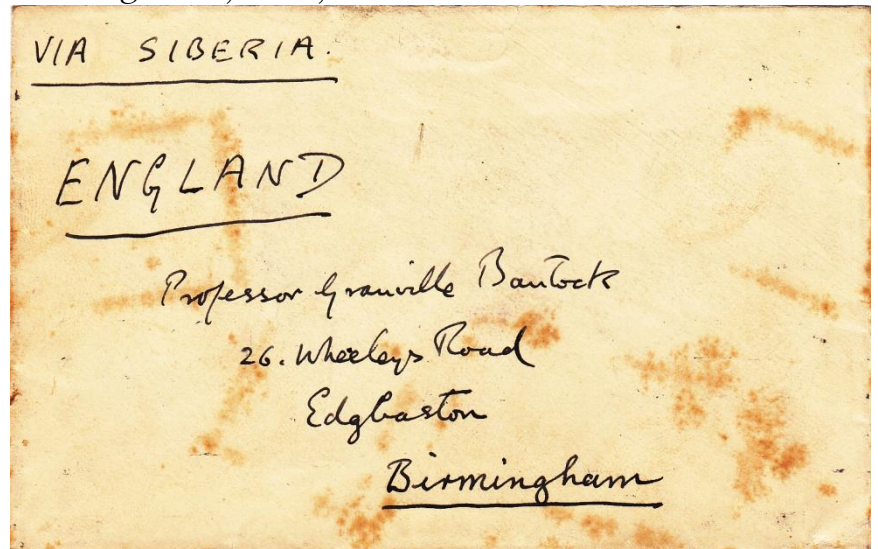 VIA SIBERIA.
ENGLAND
Professor Granville Bantock
26. Wheeleys Road
Edgbaston
Birmingham